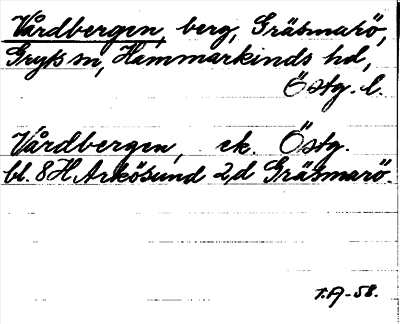 Vårdbergen, berg, Gräsmarö,
Gryts sn, Hammarkinds hd,
Östg. l.
Vårdbergen, ek. Östg.
bl. 8H Arkösund 2,d Gräsmarö.
T.A-58.